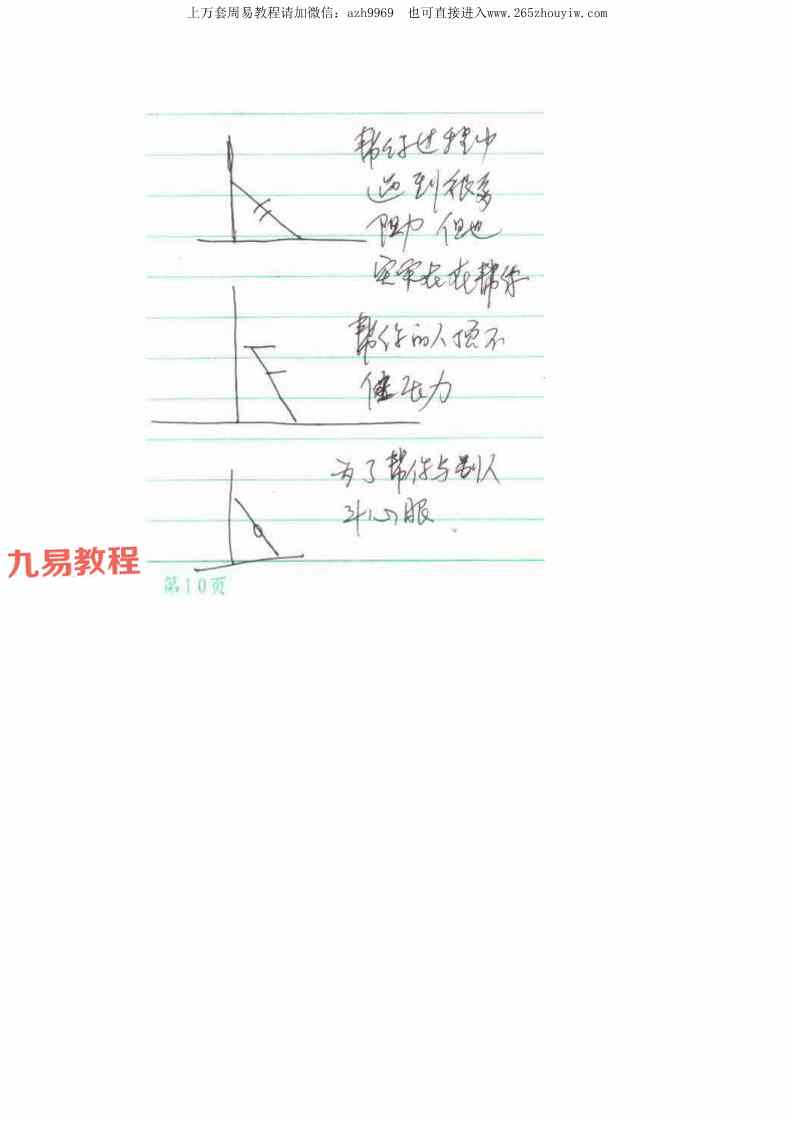 上万套周易教程请加微信：azh9969 也可直接进入www.265zhouyiw.com
帮你过程中
遇到很多
阻力 但也
实实在在帮你
帮你的人顶不
住压力
为了帮你与别人
斗心眼
九易教程
第10页